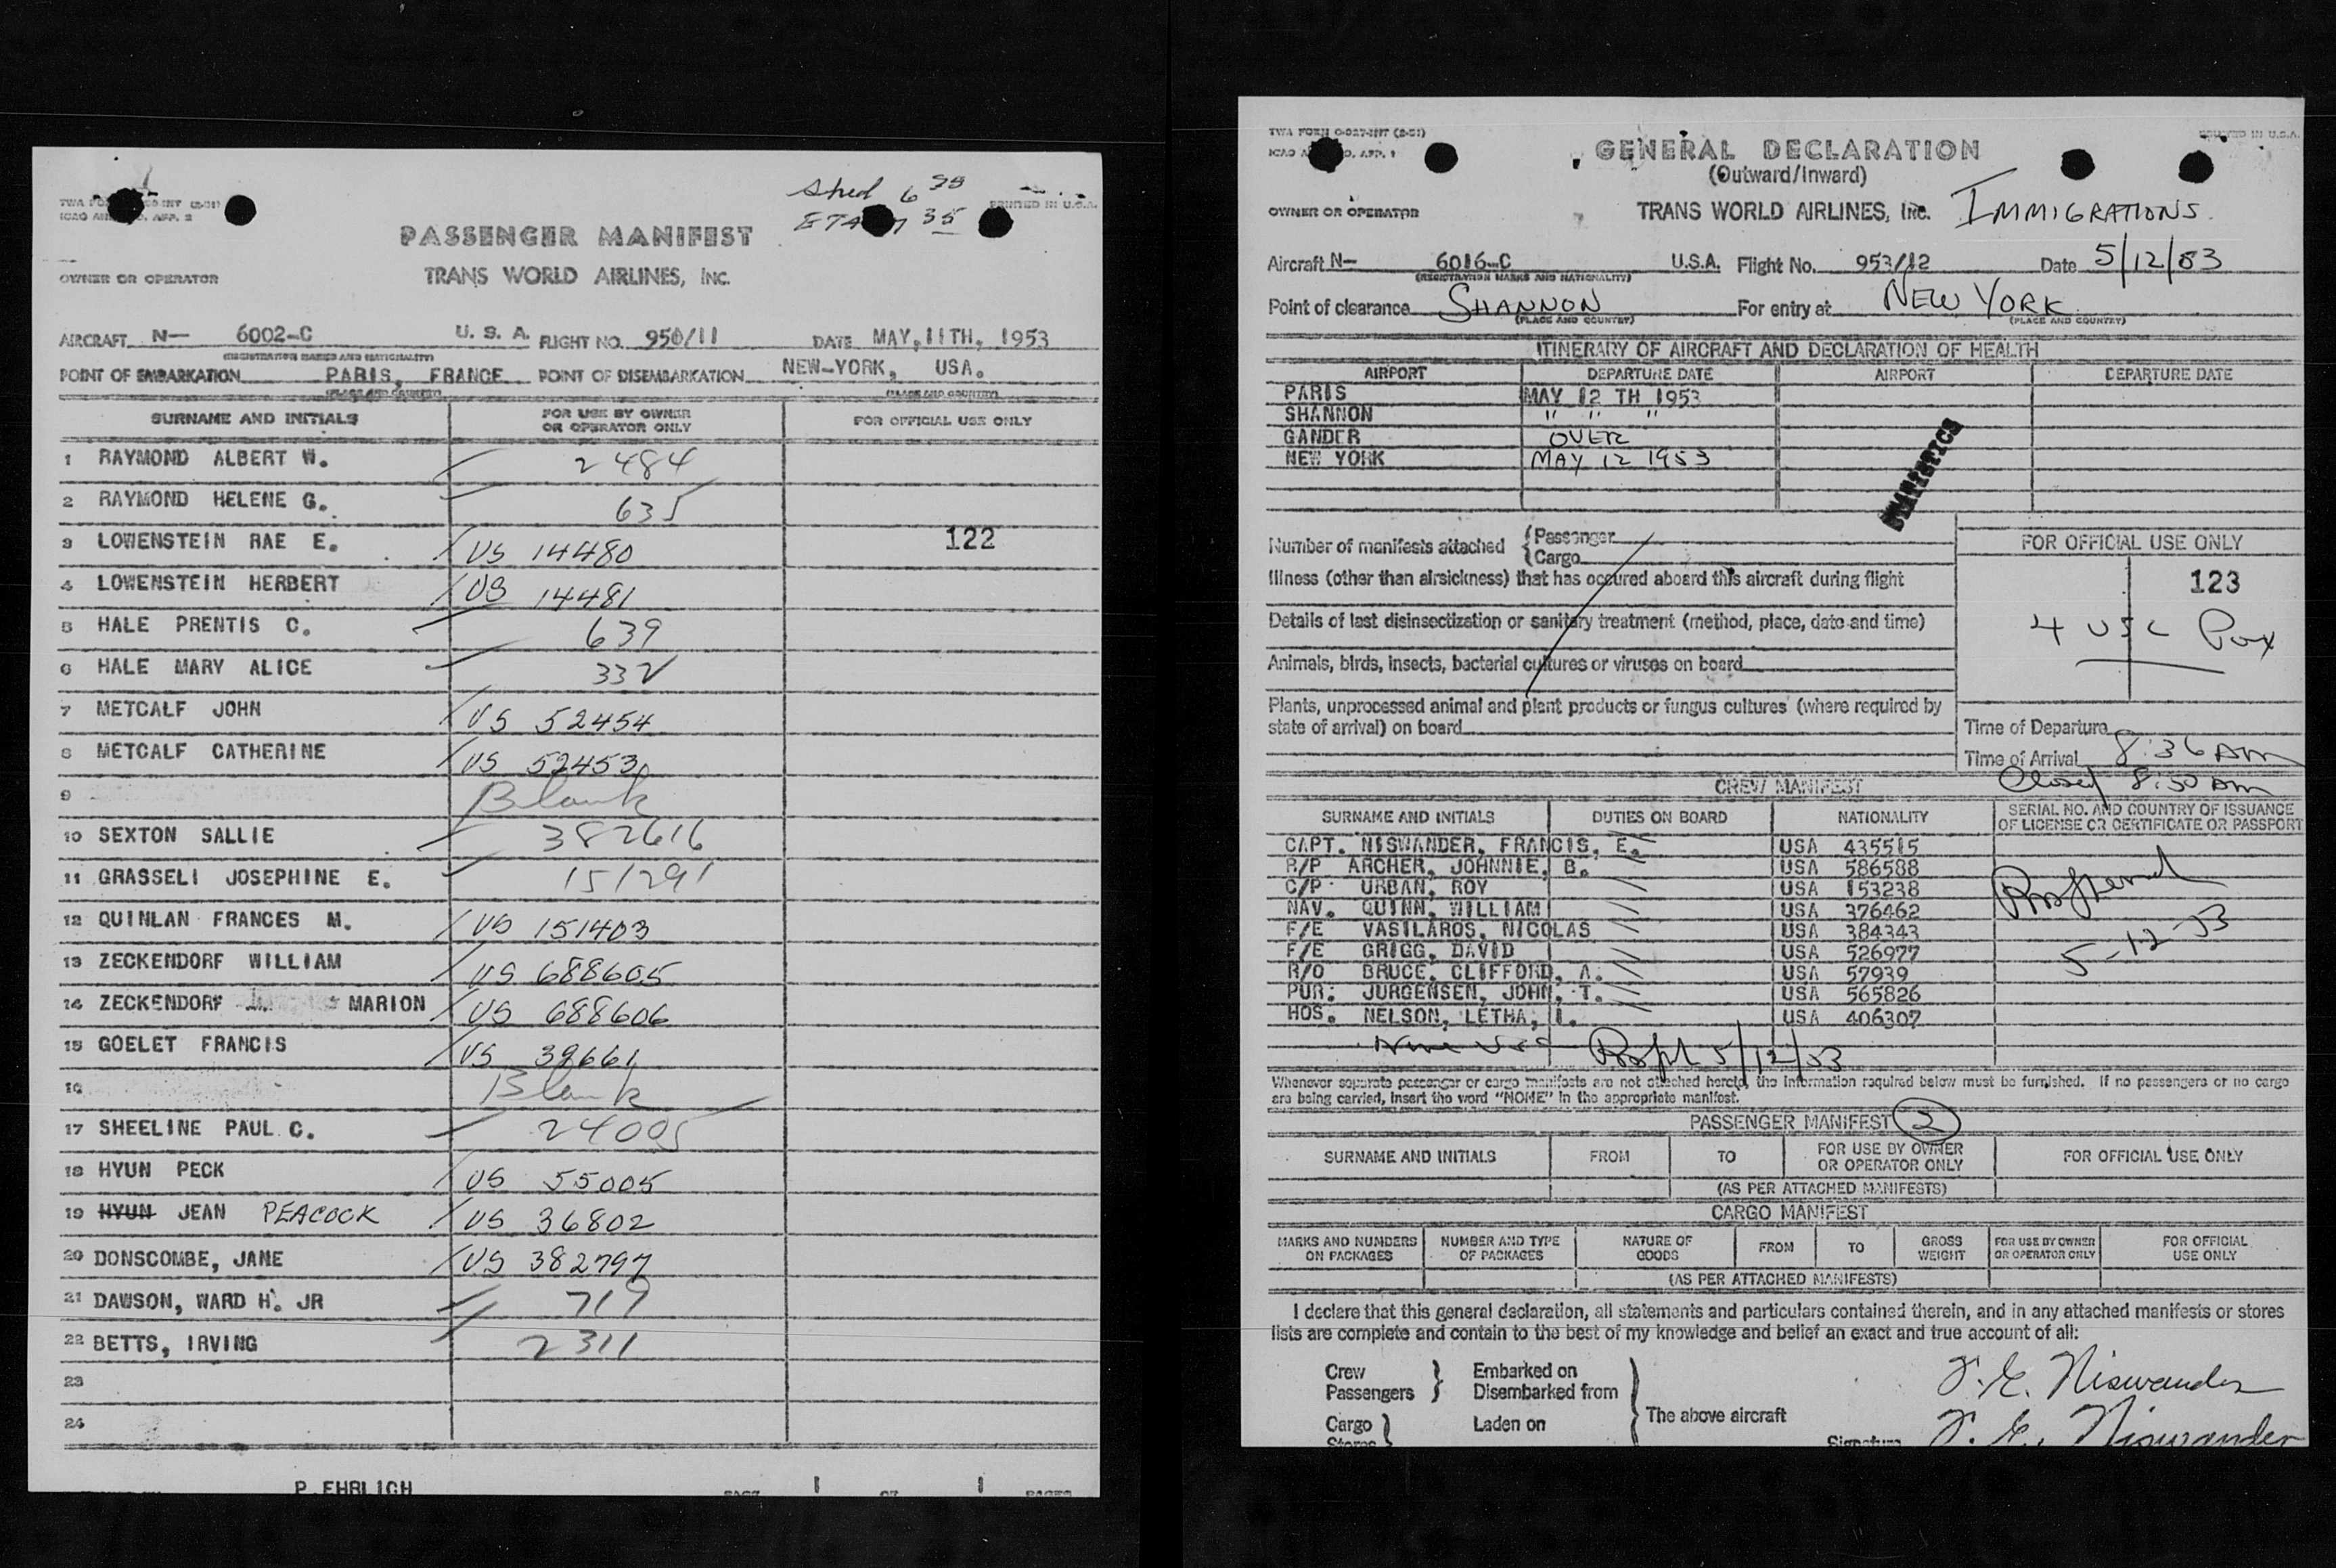 Sked 6
ETA 35
PRINTED IN U.S.A.
PASSENGER MANIFEST
OWNER OR OPERATOR TRANS WORLD AIRLINES, INC.
AIRCRAFT N- 6002-C U. S. A. FLIGHT NO. 950/11 DATE MAY, 11TH, 1953
(REGISTRATION MARKS AND NATIONALITY)
POINT OF EMBARKATION PARIS, FRANCE POINT OF DISEMBARKATION NEW-YORK, USA.
(PLACE AND COUNTRY) (PLACE AND COUNTRY)
SURNAME AND INITIALS FOR USE BY OWNER OR OPERATOR ONLY FOR OFFICIAL USE ONLY
1 RAYMOND ALBERT W. 2484
2 RAYMOND HELENE G. 635
3 LOWENSTEIN RAE E. US 14480 122
4 LOWENSTEIN HERBERT US 14481
5 HALE PRENTIS C. 639
6 HALE MARY ALICE 332
7 METCALF JOHN US 52454
8 METCALF CATHERINE US 52453
9 Blank
10 SEXTON SALLIE 382616
11 GRASSELI JOSEPHINE E. 151291
12 QUINLAN FRANCES M. US 151403
13 ZECKENDORF WILLIAM US 688605
14 ZECKENDORF MARION US 688606
15 GOELET FRANCIS US 38661
16 Blank
17 SHEELINE PAUL C. 24005
18 HYUN PECK US 55005
19 HYUN JEAN PEACOCK US 36802
20 DONSCOMBE, JANE US 382797
21 DAWSON, WARD H. JR 719
22 BETTS, IRVING 2311
23
24
P.EHRLICH
TWA FORM O-027-INT (2-51)
PRINTED IN U.S.A.
GENERAL DECLARATION
(Outward/Inward)
OWNER OR OPERATOR TRANS WORLD AIRLINES, Inc. IMMIGRATIONS
Aircraft N- 6016-C U.S.A. Flight No. 953/12 Date 5/12/53
(REGISTRATION MARKS AND NATIONALITY)
Point of clearance SHANNON For entry at NEW YORK
(PLACE AND COUNTRY) (PLACE AND COUNTRY)
ITINERARY OF AIRCRAFT AND DECLARATION OF HEALTH
AIRPORT DEPARTURE DATE AIRPORT DEPARTURE DATE
PARIS MAY 12 TH 1953
SHANNON " " "
GANDER OVER
NEW YORK MAY 12 1953
STATISTICS
Number of manifests attached {Passenger
{Cargo
FOR OFFICIAL USE ONLY
Illness (other than airsickness) that has occured aboard this aircraft during flight
123
Details of last disinsectization or sanitary treatment (method, place, date and time)
4 USC Pax
Animals, birds, insects, bacterial cultures or viruses on board
Plants, unprocessed animal and plant products or fungus cultures (where required by
state of arrival) on board
Time of Departure
Time of Arrival 8:36 AM
Closed 8:50 AM
CREW MANIFEST
SURNAME AND INITIALS DUTIES ON BOARD NATIONALITY SERIAL NO. AND COUNTRY OF ISSUANCE OF LICENSE OR CERTIFICATE OR PASSPORT
CAPT. NISWANDER, FRANCIS, E. USA 435515
R/P ARCHER, JOHNNIE, B. USA 586588
C/P URBAN, ROY USA 153238
NAV. QUINN, WILLIAM USA 376462
F/E VASILAROS, NICOLAS USA 384343
F/E GRIGG, DAVID USA 526977
R/O BRUCE, CLIFFORD, A. USA 57939
PUR. JURGENSEN, JOHN, T. USA 565826
HOS. NELSON, LETHA, I. USA 406307
5-12-53
5/12/53
Whenever separate passenger or cargo manifests are not attached hereto, the information required below must be furnished. If no passengers or no cargo
are being carried, insert the word "NONE" in the appropriate manifest.
PASSENGER MANIFEST 2
SURNAME AND INITIALS FROM TO FOR USE BY OWNER OR OPERATOR ONLY FOR OFFICIAL USE ONLY
(AS PER ATTACHED MANIFESTS)
CARGO MANIFEST
MARKS AND NUMBERS ON PACKAGES NUMBER AND TYPE OF PACKAGES NATURE OF GOODS FROM TO GROSS WEIGHT FOR USE BY OWNER OR OPERATOR ONLY FOR OFFICIAL USE ONLY
(AS PER ATTACHED MANIFESTS)
I declare that this general declaration, all statements and particulars contained therein, and in any attached manifests or stores
lists are complete and contain to the best of my knowledge and belief an exact and true account of all:
Crew } Embarked on
Passengers } Disembarked from
The above aircraft
Cargo } Laden on
F. E. Niswander
Signature F. E. Niswander